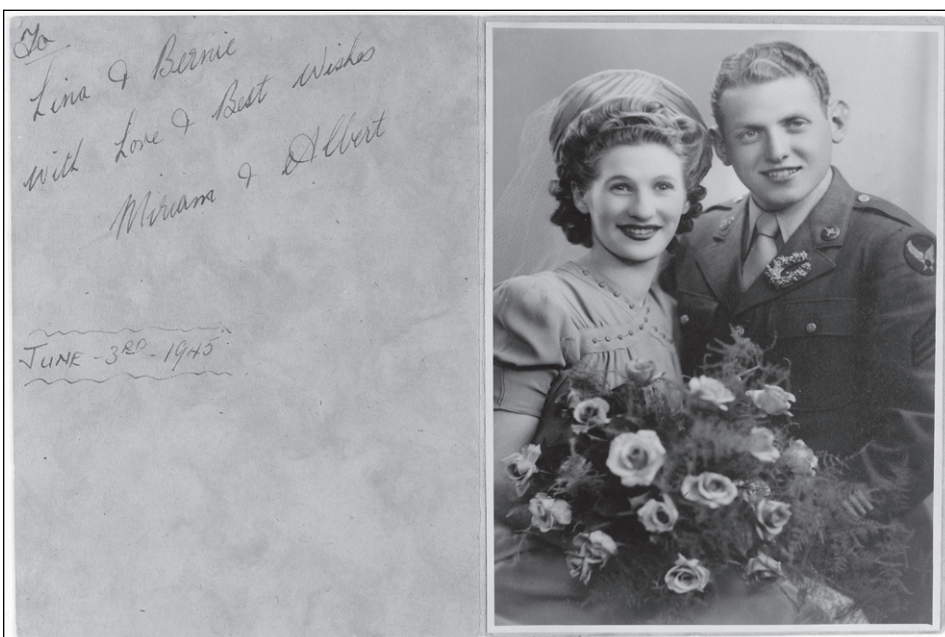 To
Lina & Bernie
with Love & Best Wishes
Miriam & Albert
JUNE - 3RD - 1945